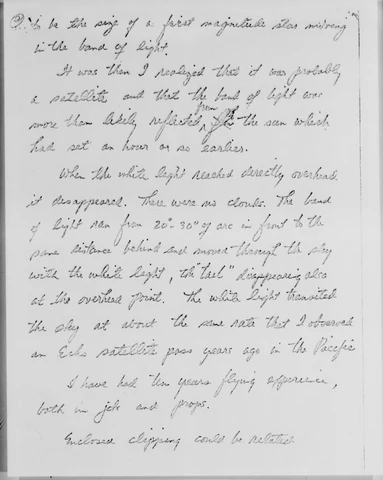 to be the size of a first magnitude star moving
in the band of light.
It was then I realized that it was probably
a satellite and that the band of light was
more than likely reflected from the sun which
had set an hour or so earlier.
When the white light reached directly overhead
it disappeared. There were no clouds. The band
of light ran from 20°-30° of arc in front to the
same distance behind and moved through the sky
with the white light, the "tail" disappearing also
at the overhead point. The white light transited
the sky at about the same rate that I observed
an Echo satellite pass years ago in the Pacific
I have had ten years flying experience,
both in jets and props.
Enclosed clipping could be related